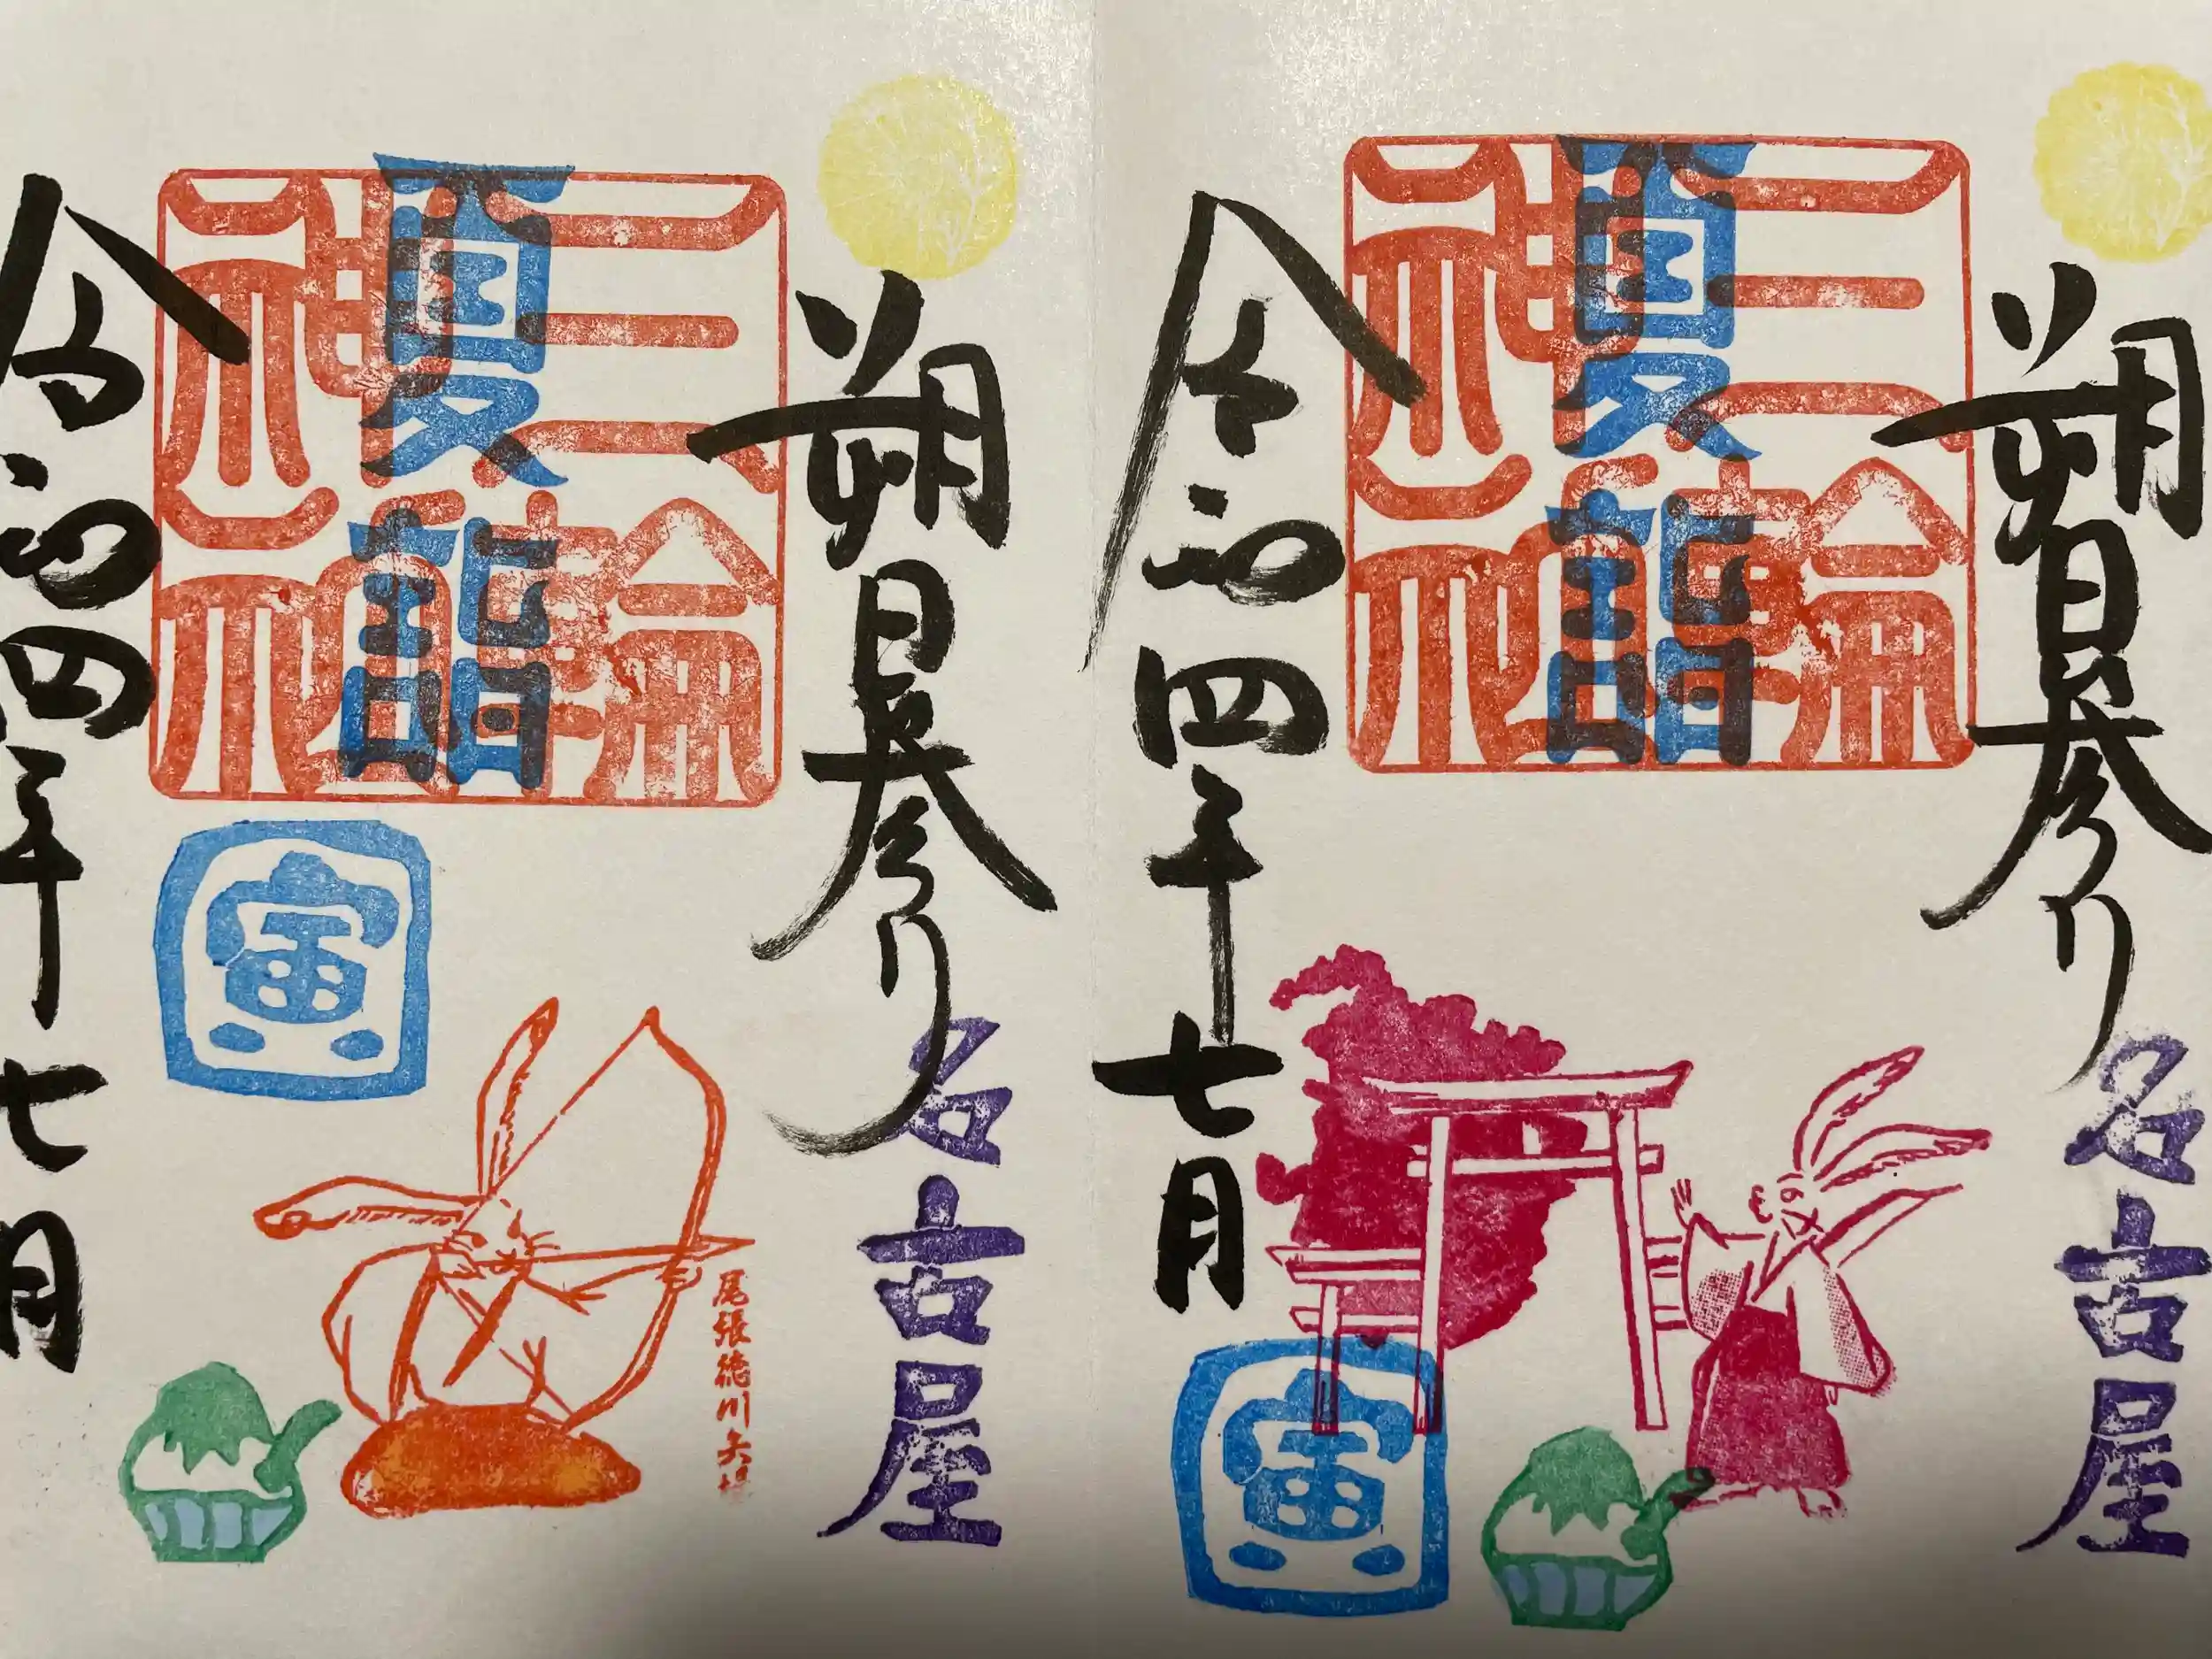 朔日参り
名古屋
三輪
神社
夏詣
令和四年七月
寅
朔日参り
名古屋
三輪
神社
夏詣
令和四年七月
寅
尾張徳川矢場